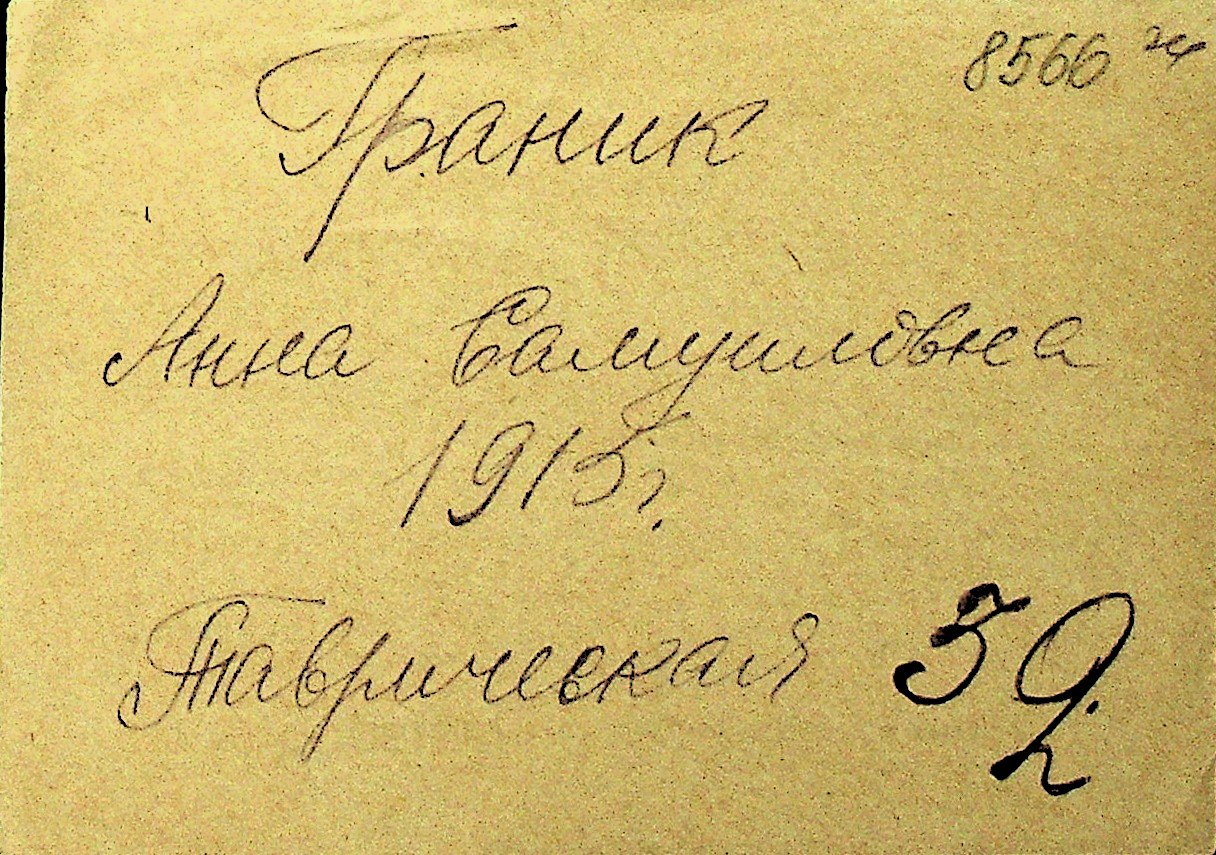 8566
Граник
Анна Самуиловна
1915 г.
Таврическая